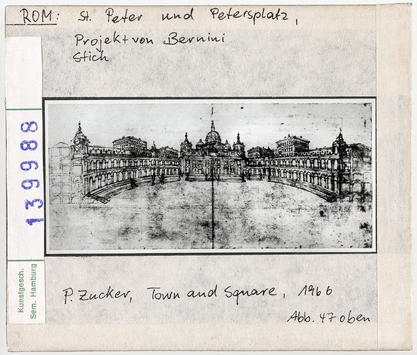 ROM: St. Peter und Petersplatz,
Projekt von Bernini
Stich
139988
Kunstgesch.
Sem. Hamburg
P. Zucker, Town and Square, 1966
Abb. 47 oben